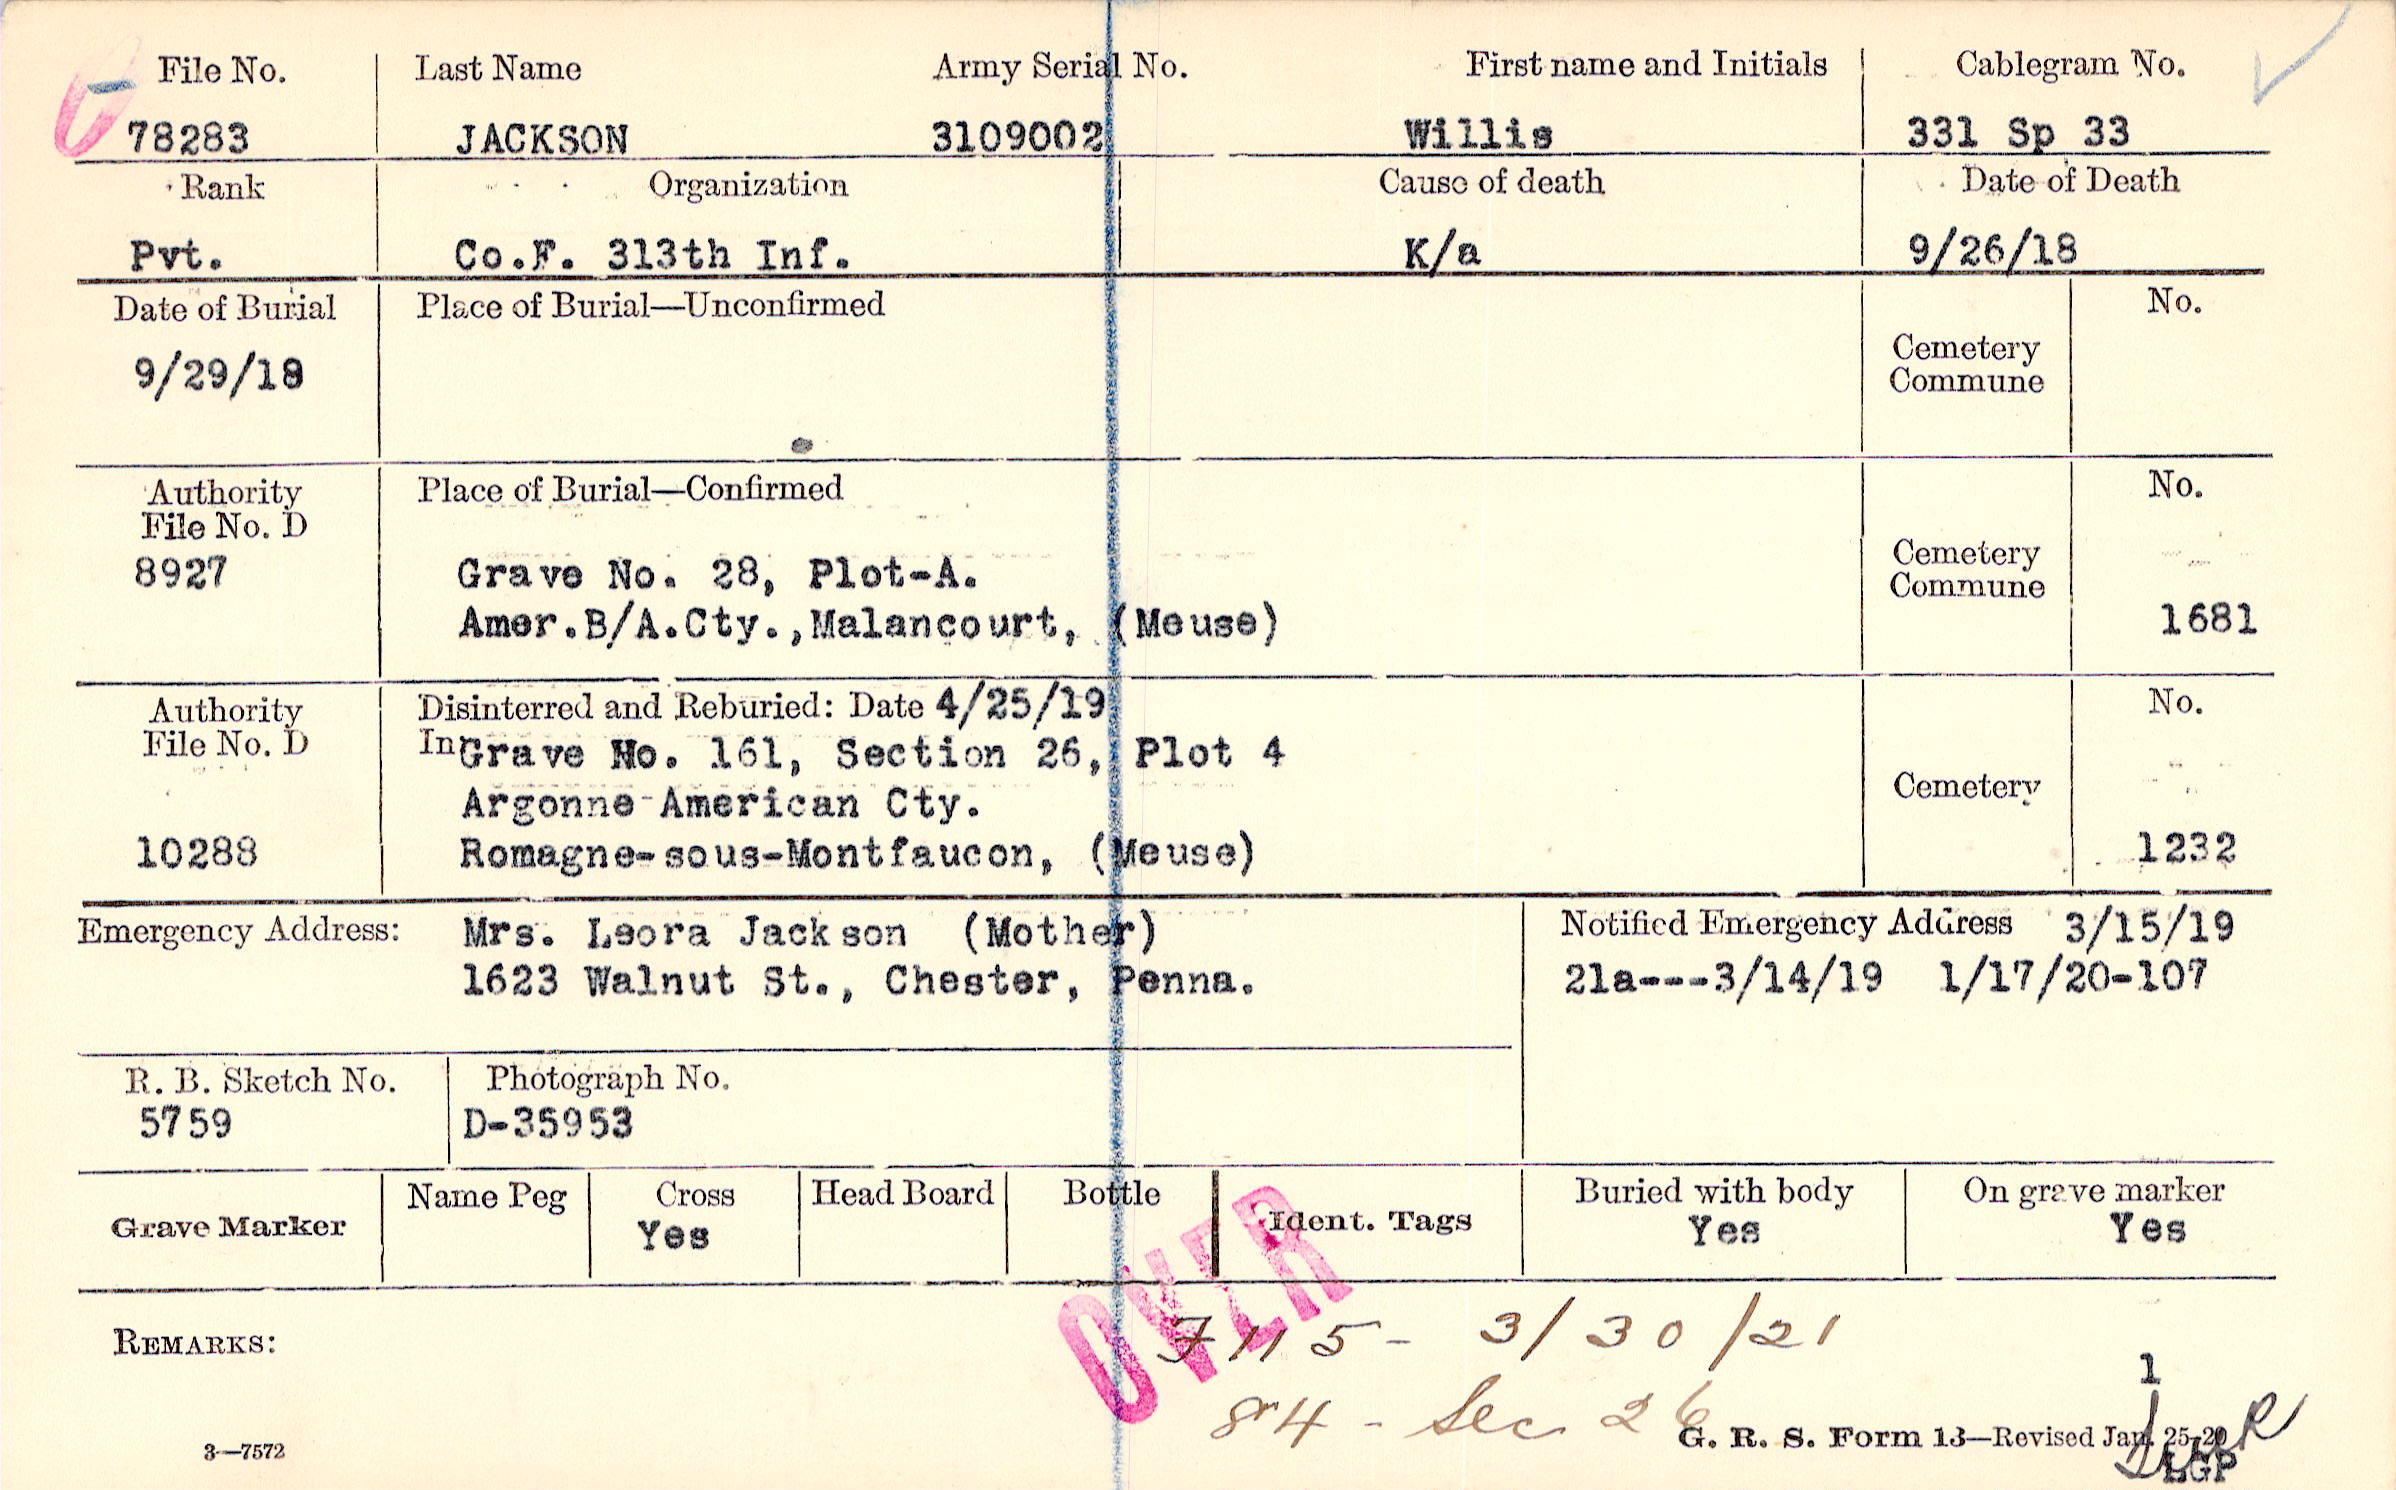 File No. Last Name Army Serial No. First name and Initials Cablegram No.
78283 JACKSON 3109002 Willis 331 Sp 33
Rank Organization Cause of death Date of Death
Pvt. Co.F. 313th Inf. K/a 9/26/18
Date of Burial Place of Burial—Unconfirmed No.
9/29/18
Cemetery
Commune
Authority Place of Burial—Confirmed No.
File No. D
8927 Grave No. 28, Plot-A.
Cemetery
Commune
Amer.B/A.Cty.,Malancourt, (Meuse) 1681
Authority Disinterred and Reburied: Date 4/25/19 No.
File No. D In Grave No. 161, Section 26, Plot 4
Argonne American Cty. Cemetery
10288 Romagne-sous-Montfaucon, (Meuse) 1232
Emergency Address: Mrs. Leora Jackson (Mother) Notified Emergency Address 3/15/19
1623 Walnut St., Chester, Penna. 21a---3/14/19 1/17/20-107
R. B. Sketch No. Photograph No.
5759 D-35953
Grave Marker Name Peg Cross Head Board Bottle Ident. Tags Buried with body On grave marker
Yes Yes Yes
OVER
REMARKS: 7115- 3/30/21
1
84 - Sec 26
3—7572 G. R. S. Form 13—Revised Jan. 25-20
LGP